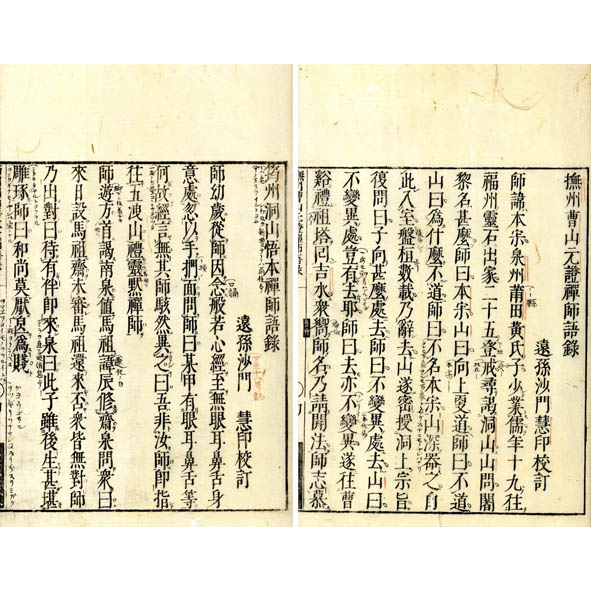 撫州曹山元證禪師語錄
遠孫沙門 慧印校訂
師諱本宗泉州莆田黃氏子少業儒年十九往
福州靈石出家二十五登戒尋謁洞山山問闍
黎名甚麼師曰本宗山曰向上更道師曰不道
山曰爲什麼不道師曰不名本宗山深器之自
此入室盤桓數載乃辭去山遂密授洞上宗旨
復問曰子向甚麼處去師曰不變異處去山曰
不變異處豈有去耶師曰去亦不變異遂往曹
谿禮祖塔回吉水衆嚮師名乃請開法師志慕
筠州洞山悟本禪師語錄
遠孫沙門 慧印校訂
師幼歲從師因念般若心經至無眼耳鼻舌身
意處忽以手捫面問師曰某甲有眼耳鼻舌等
何故經言無其師駭然異之曰吾非汝師即指
往五洩山禮靈默禪師
師遊方首謁南泉値馬祖諱辰修齋泉問衆曰
來日設馬祖齋未審馬祖還來否衆皆無對師
乃出對曰待有伴即來泉曰此子雖後生甚堪
雕琢師曰和尚莫厭良爲賤